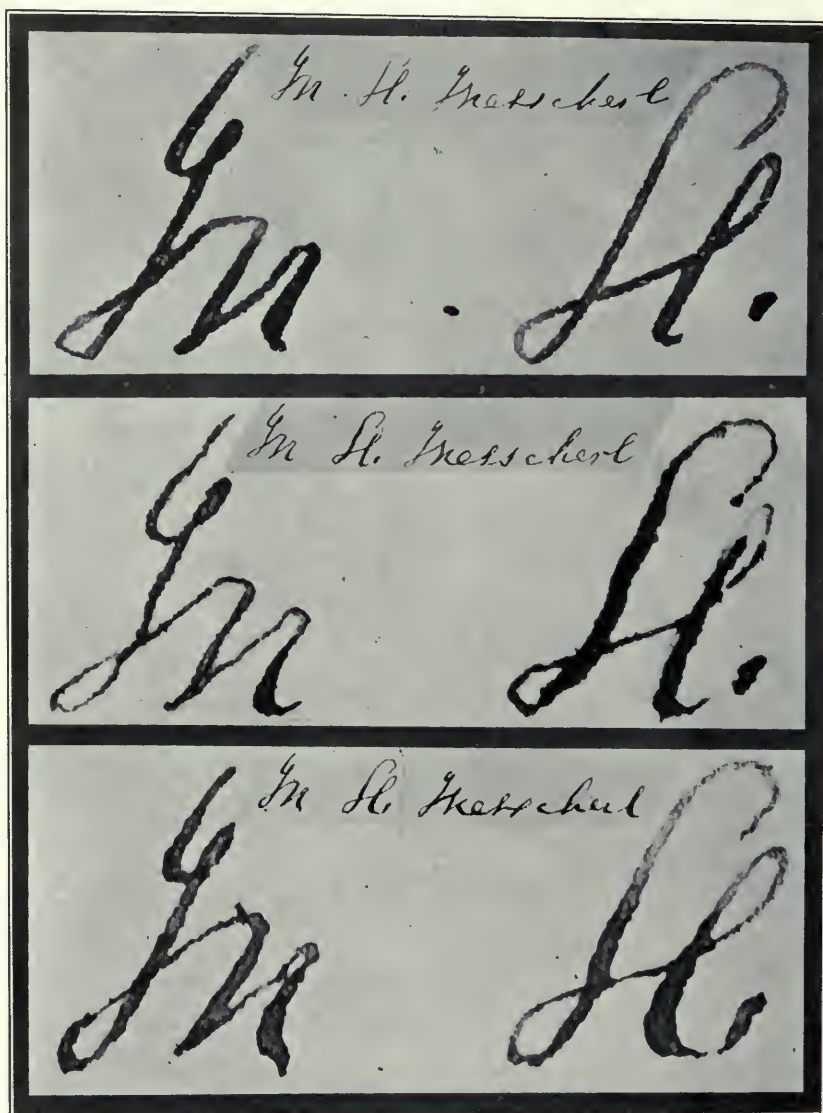 M. H. Messchert
M . H.
M H. Messchert
M H.
M H. Messchert
M H.